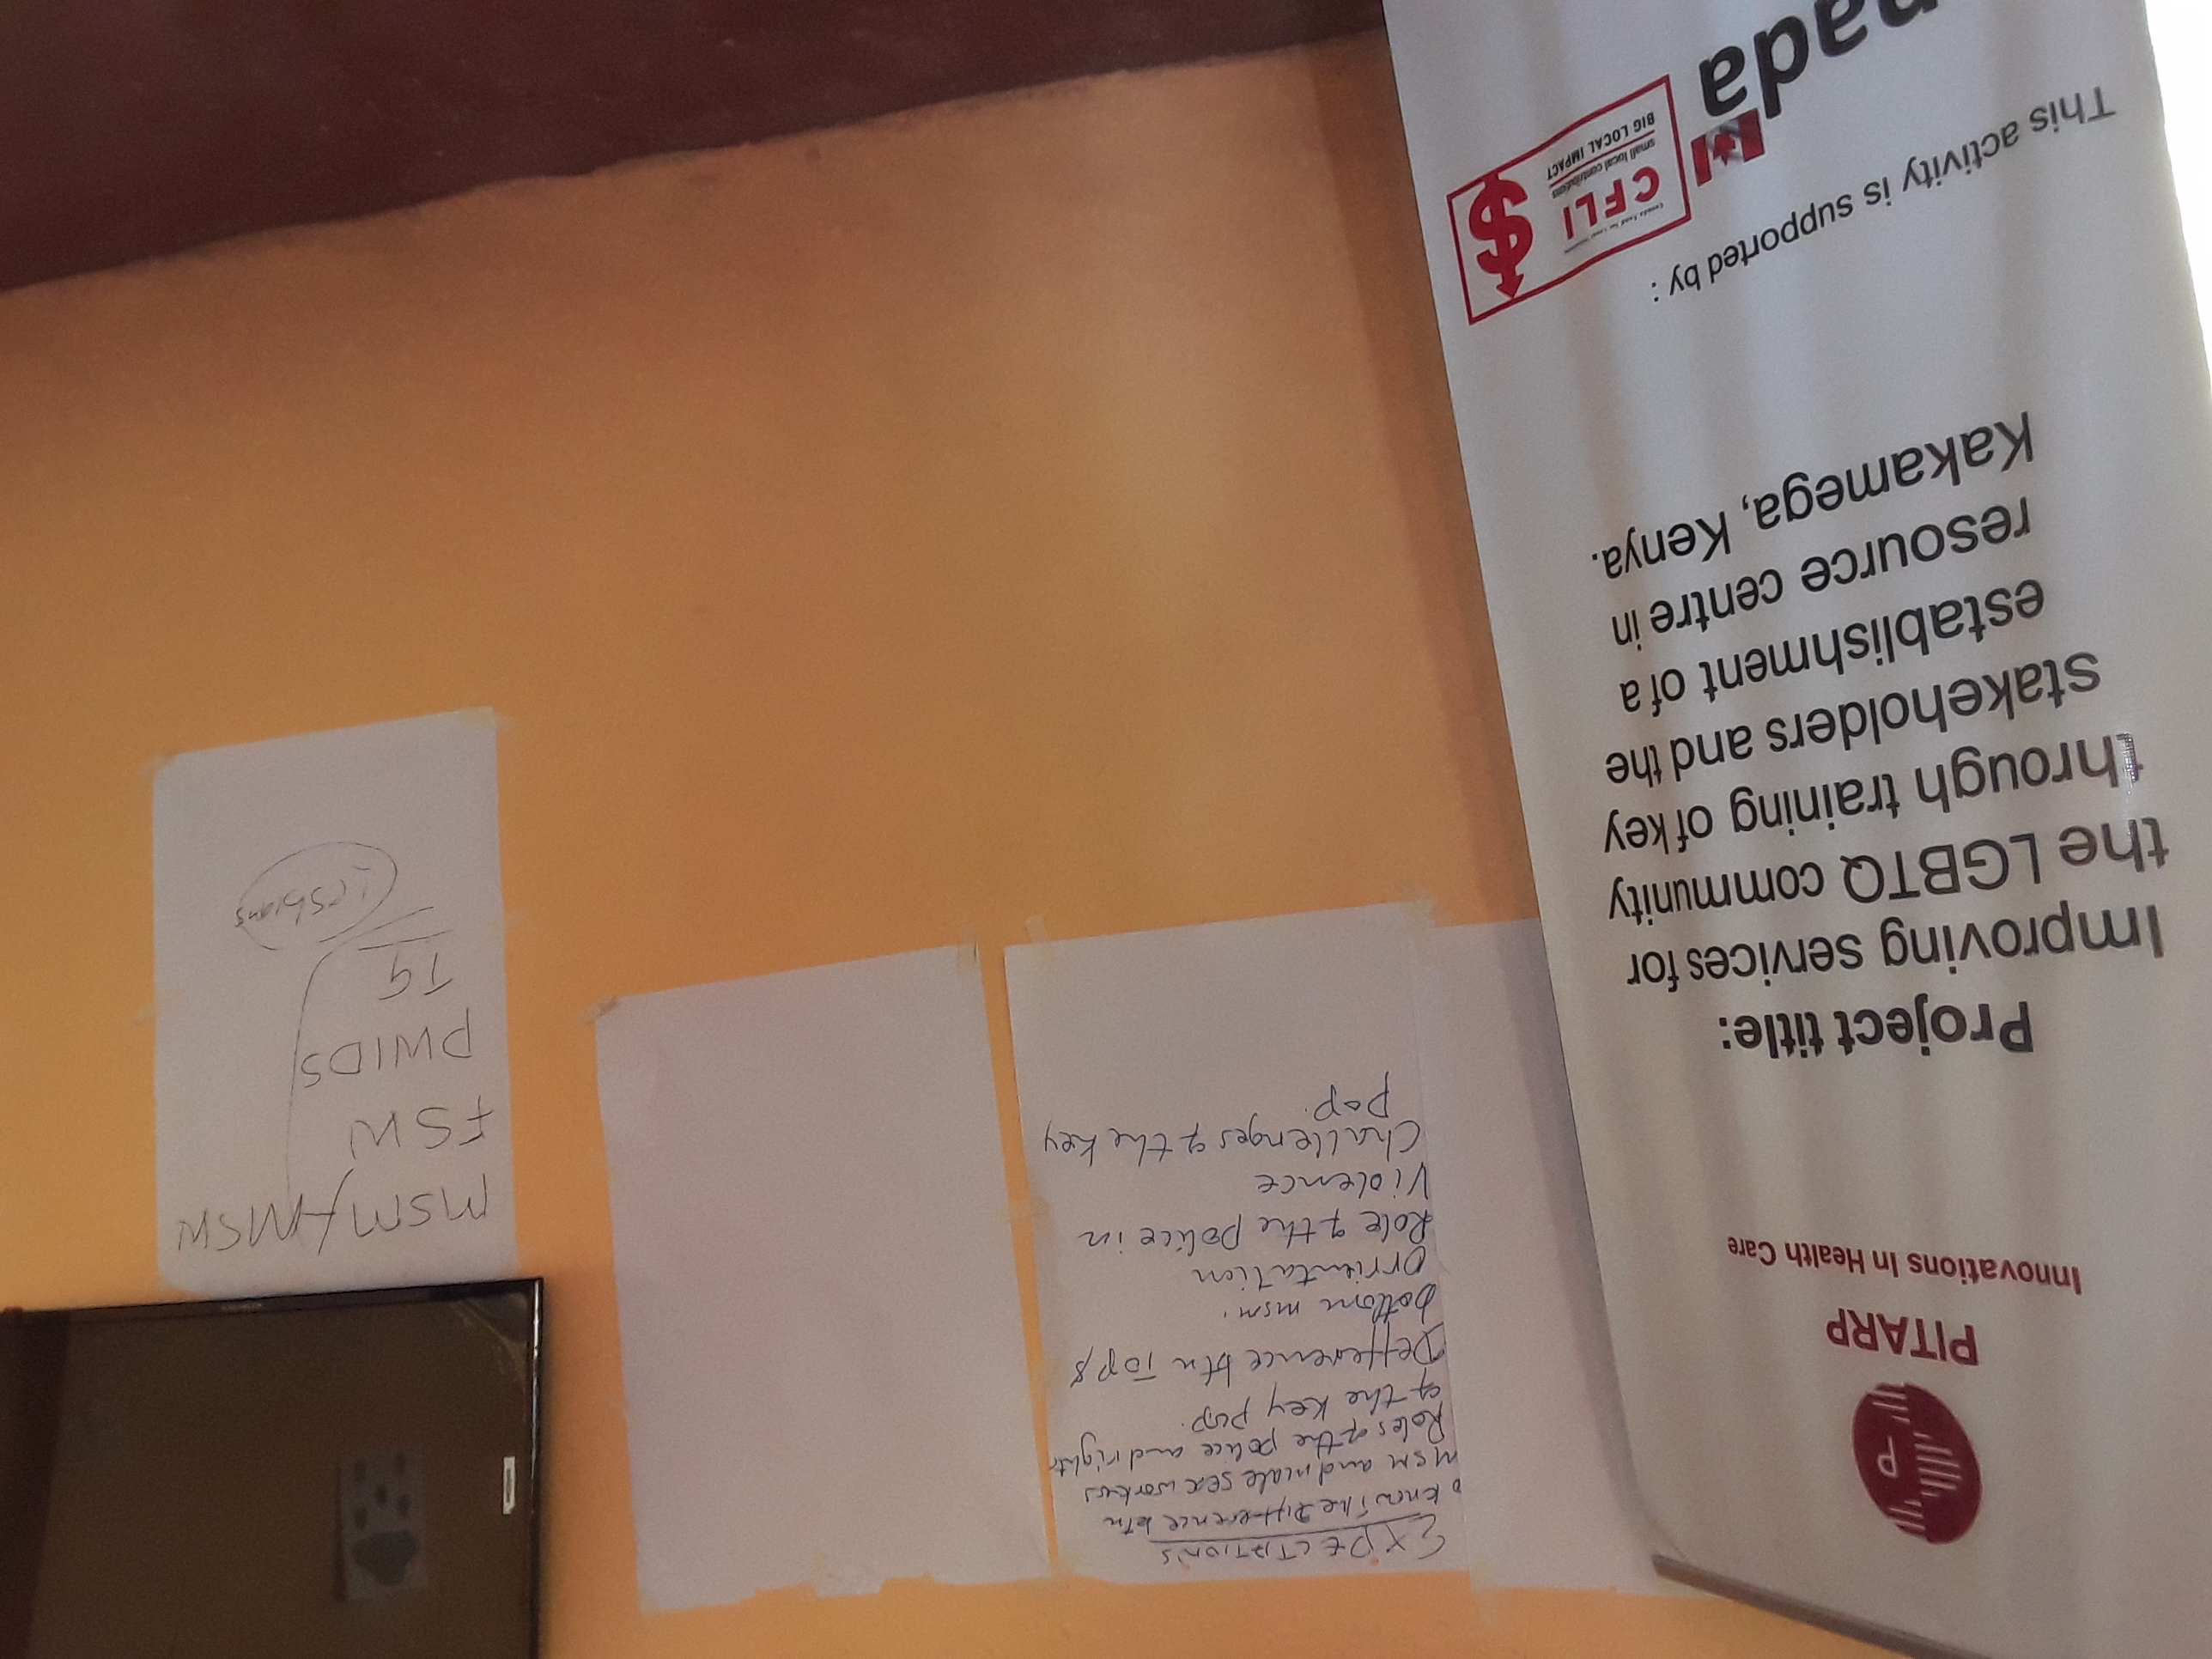 P
PITARP
Innovations In Health Care
Project title:
Improving services for
the LGBTQ community
through training of key
stakeholders and the
establishment of a
resource centre in
Kakamega, Kenya.
This activity is supported by :
nada
Canada Fund for Local Initiatives
CFLI
small local contributions
BIG LOCAL IMPACT
$
EXPECTATIONS
Know The Difference btn
MSM and male sex workers
Roles of the police and rights
of the key pop.
Defference btn Top &
bottom msm.
Orrientation
Role of the Police in
Violence
Challenges of the key
pop.
MSM/MSW
FSW
PWIDS
TG
Lesbians